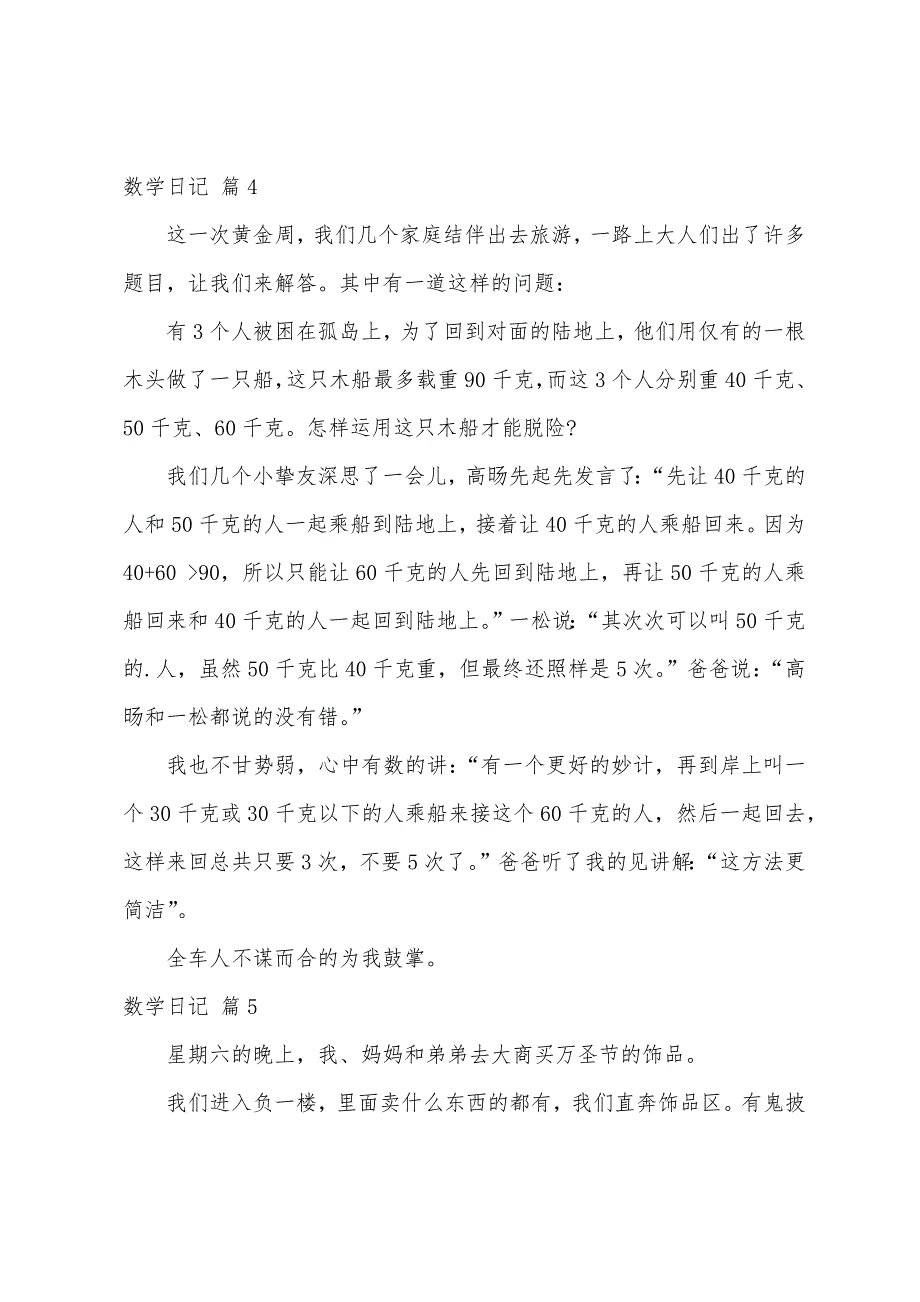 数学日记 篇4
这一次黄金周，我们几个家庭结伴出去旅游，一路上大人们出了许多
题目，让我们来解答。其中有一道这样的问题：
有3个人被困在孤岛上，为了回到对面的陆地上，他们用仅有的一根
木头做了一只船，这只木船最多载重90千克，而这3个人分别重40千克、
50千克、60千克。怎样运用这只木船才能脱险?
我们几个小挚友深思了一会儿，高旸先起先发言了：“先让40千克的
人和50千克的人一起乘船到陆地上，接着让40千克的人乘船回来。因为
40+60 >90，所以只能让60千克的人先回到陆地上，再让50千克的人乘
船回来和40千克的人一起回到陆地上。”一松说：“其次次可以叫50千克
的.人，虽然50千克比40千克重，但最终还照样是5次。”爸爸说：“高
旸和一松都说的没有错。”
我也不甘势弱，心中有数的讲：“有一个更好的妙计，再到岸上叫一
个30千克或30千克以下的人乘船来接这个60千克的人，然后一起回去，
这样来回总共只要3次，不要5次了。”爸爸听了我的见讲解：“这方法更
简洁”。
全车人不谋而合的为我鼓掌。
数学日记 篇5
星期六的晚上，我、妈妈和弟弟去大商买万圣节的饰品。
我们进入负一楼，里面卖什么东西的都有，我们直奔饰品区。有鬼披